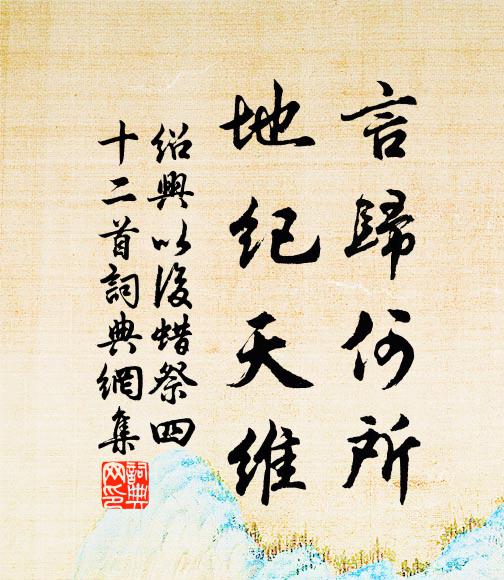 言歸何所
地紀天維
紹興以後蜡祭四
十二首詞典網集
詞典網印